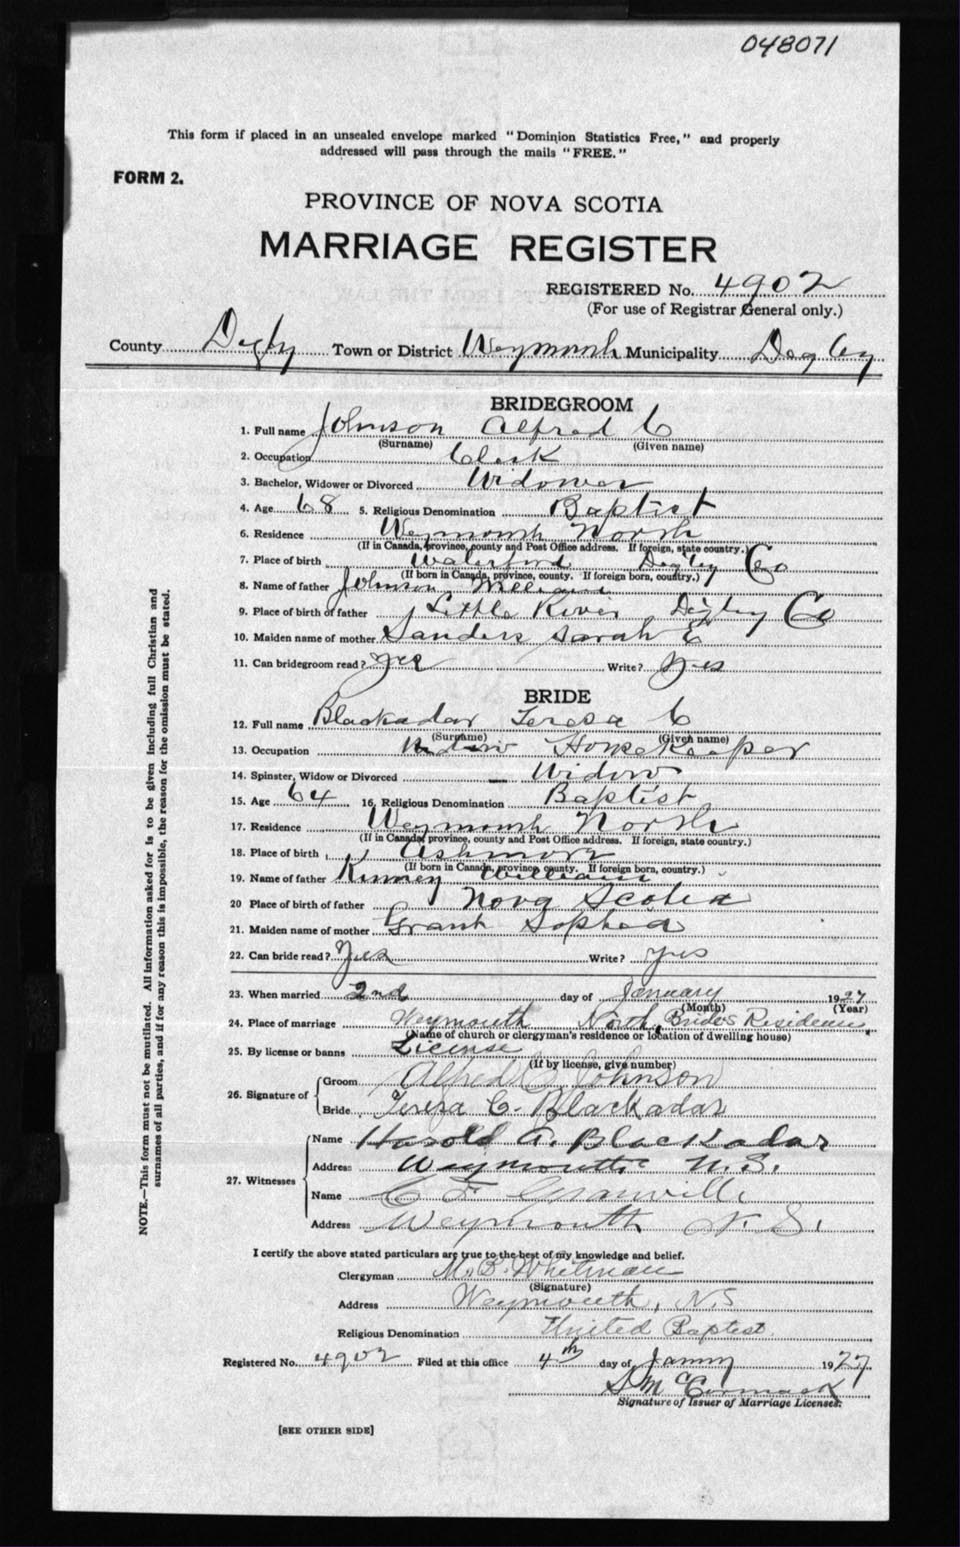 048071
This form if placed in an unsealed envelope marked "Dominion Statistics Free," and properly
addressed will pass through the mails "FREE."
FORM 2.
PROVINCE OF NOVA SCOTIA
MARRIAGE REGISTER
REGISTERED No. 4902
(For use of Registrar General only.)
County Digby Town or District Weymouth Municipality Digby
BRIDEGROOM
1. Full name Johnson Alfred C
(Surname) (Given name)
2. Occupation Clerk
3. Bachelor, Widower or Divorced Widower
4. Age 68 5. Religious Denomination Baptist
6. Residence Weymouth North
(If in Canada, province, county and Post Office address. If foreign, state country.)
7. Place of birth Waterford Digby Co
(If born in Canada, province, county. If foreign born, country.)
8. Name of father Johnson William
9. Place of birth of father Little River Digby Co
10. Maiden name of mother Sanders Sarah E
11. Can bridegroom read? Yes Write? Yes
BRIDE
12. Full name Blackadar Teresa C
(Surname) (Given name)
13. Occupation Widow Housekeeper
14. Spinster, Widow or Divorced – Widow
15. Age 64 16. Religious Denomination Baptist
17. Residence Weymouth North
(If in Canada, province, county and Post Office address. If foreign, state country.)
18. Place of birth Ashmore
(If born in Canada, province county. If foreign born, country.)
19. Name of father Kinney William
20 Place of birth of father Nova Scotia
21. Maiden name of mother Grant Sophia
22. Can bride read? Yes Write? Yes
23. When married 2nd day of January 1927
(Month) (Year)
24. Place of marriage Weymouth North, Bride's Residence
(Name of church or clergyman's residence or location of dwelling house)
25. By license or banns License
(If by license, give number)
26. Signature of Groom Alfred C. Johnson
Bride Teresa C. Blackadar
27. Witnesses Name Harold A. Blackadar
Address Weymouth N.S.
Name C F Granville
Address Weymouth N.S.
I certify the above stated particulars are true to the best of my knowledge and belief.
Clergyman M. B. Whitman
(Signature)
Address Weymouth, N.S
Religious Denomination United Baptist.
Registered No. 4902 Filed at this office 4th day of Janry 1927
S McCormack
Signature of Issuer of Marriage Licenses.
[SEE OTHER SIDE]
NOTE.—This form must not be mutilated. All information asked for is to be given including full Christian and
surnames of all parties, and if for any reason this is impossible, the reason for the omission must be stated.